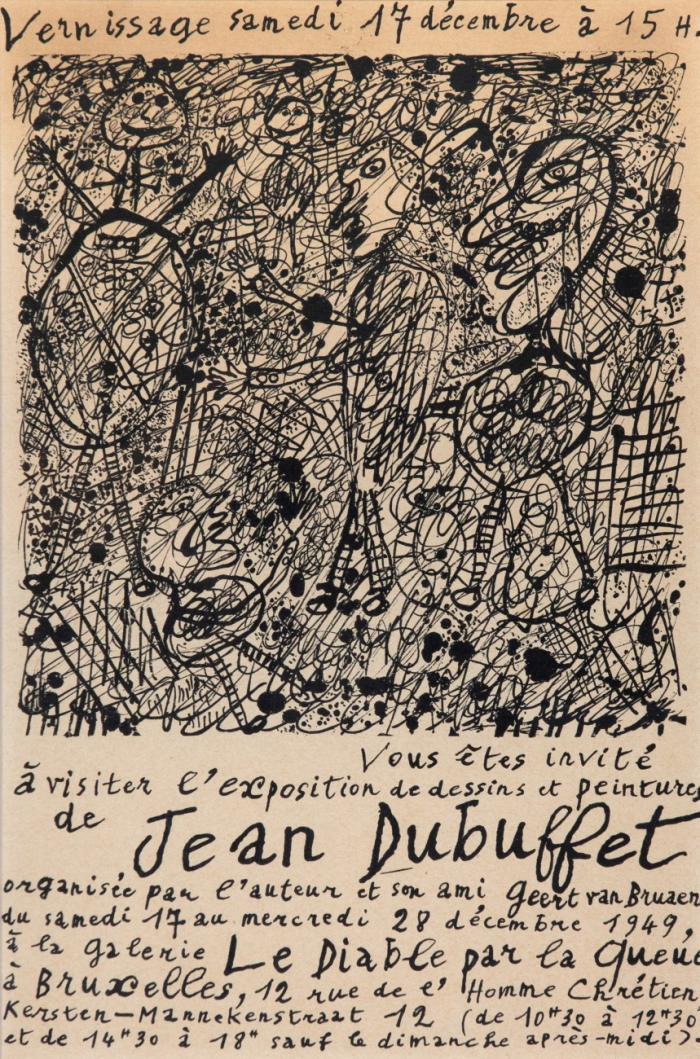 Vernissage samedi 17 décembre à 15 H.
Vous êtes invité
à visiter l'exposition de dessins et peintures
de Jean Dubuffet
organisée par l'auteur et son ami Geert van Bruaen
du samedi 17 au mercredi 28 décembre 1949,
à la galerie Le Diable par la Queue
à Bruxelles, 12 rue de l'Homme Chrétien
Kersten-Mannekenstraat 12 (de 10H30 à 12H30
et de 14H30 à 18H sauf le dimanche après-midi)